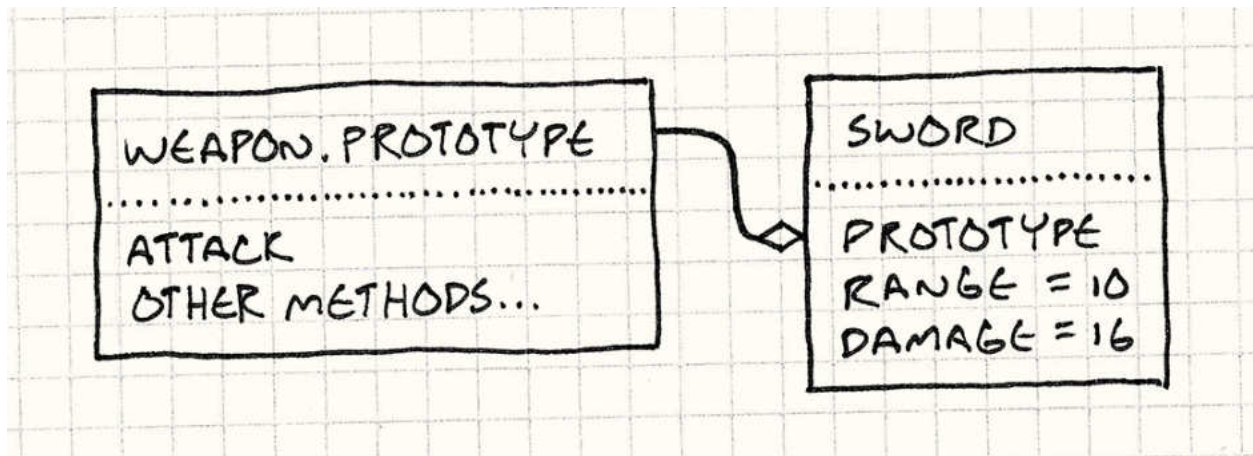 WEAPON.PROTOTYPE
ATTACK
OTHER METHODS...
SWORD
PROTOTYPE
RANGE = 10
DAMAGE = 16